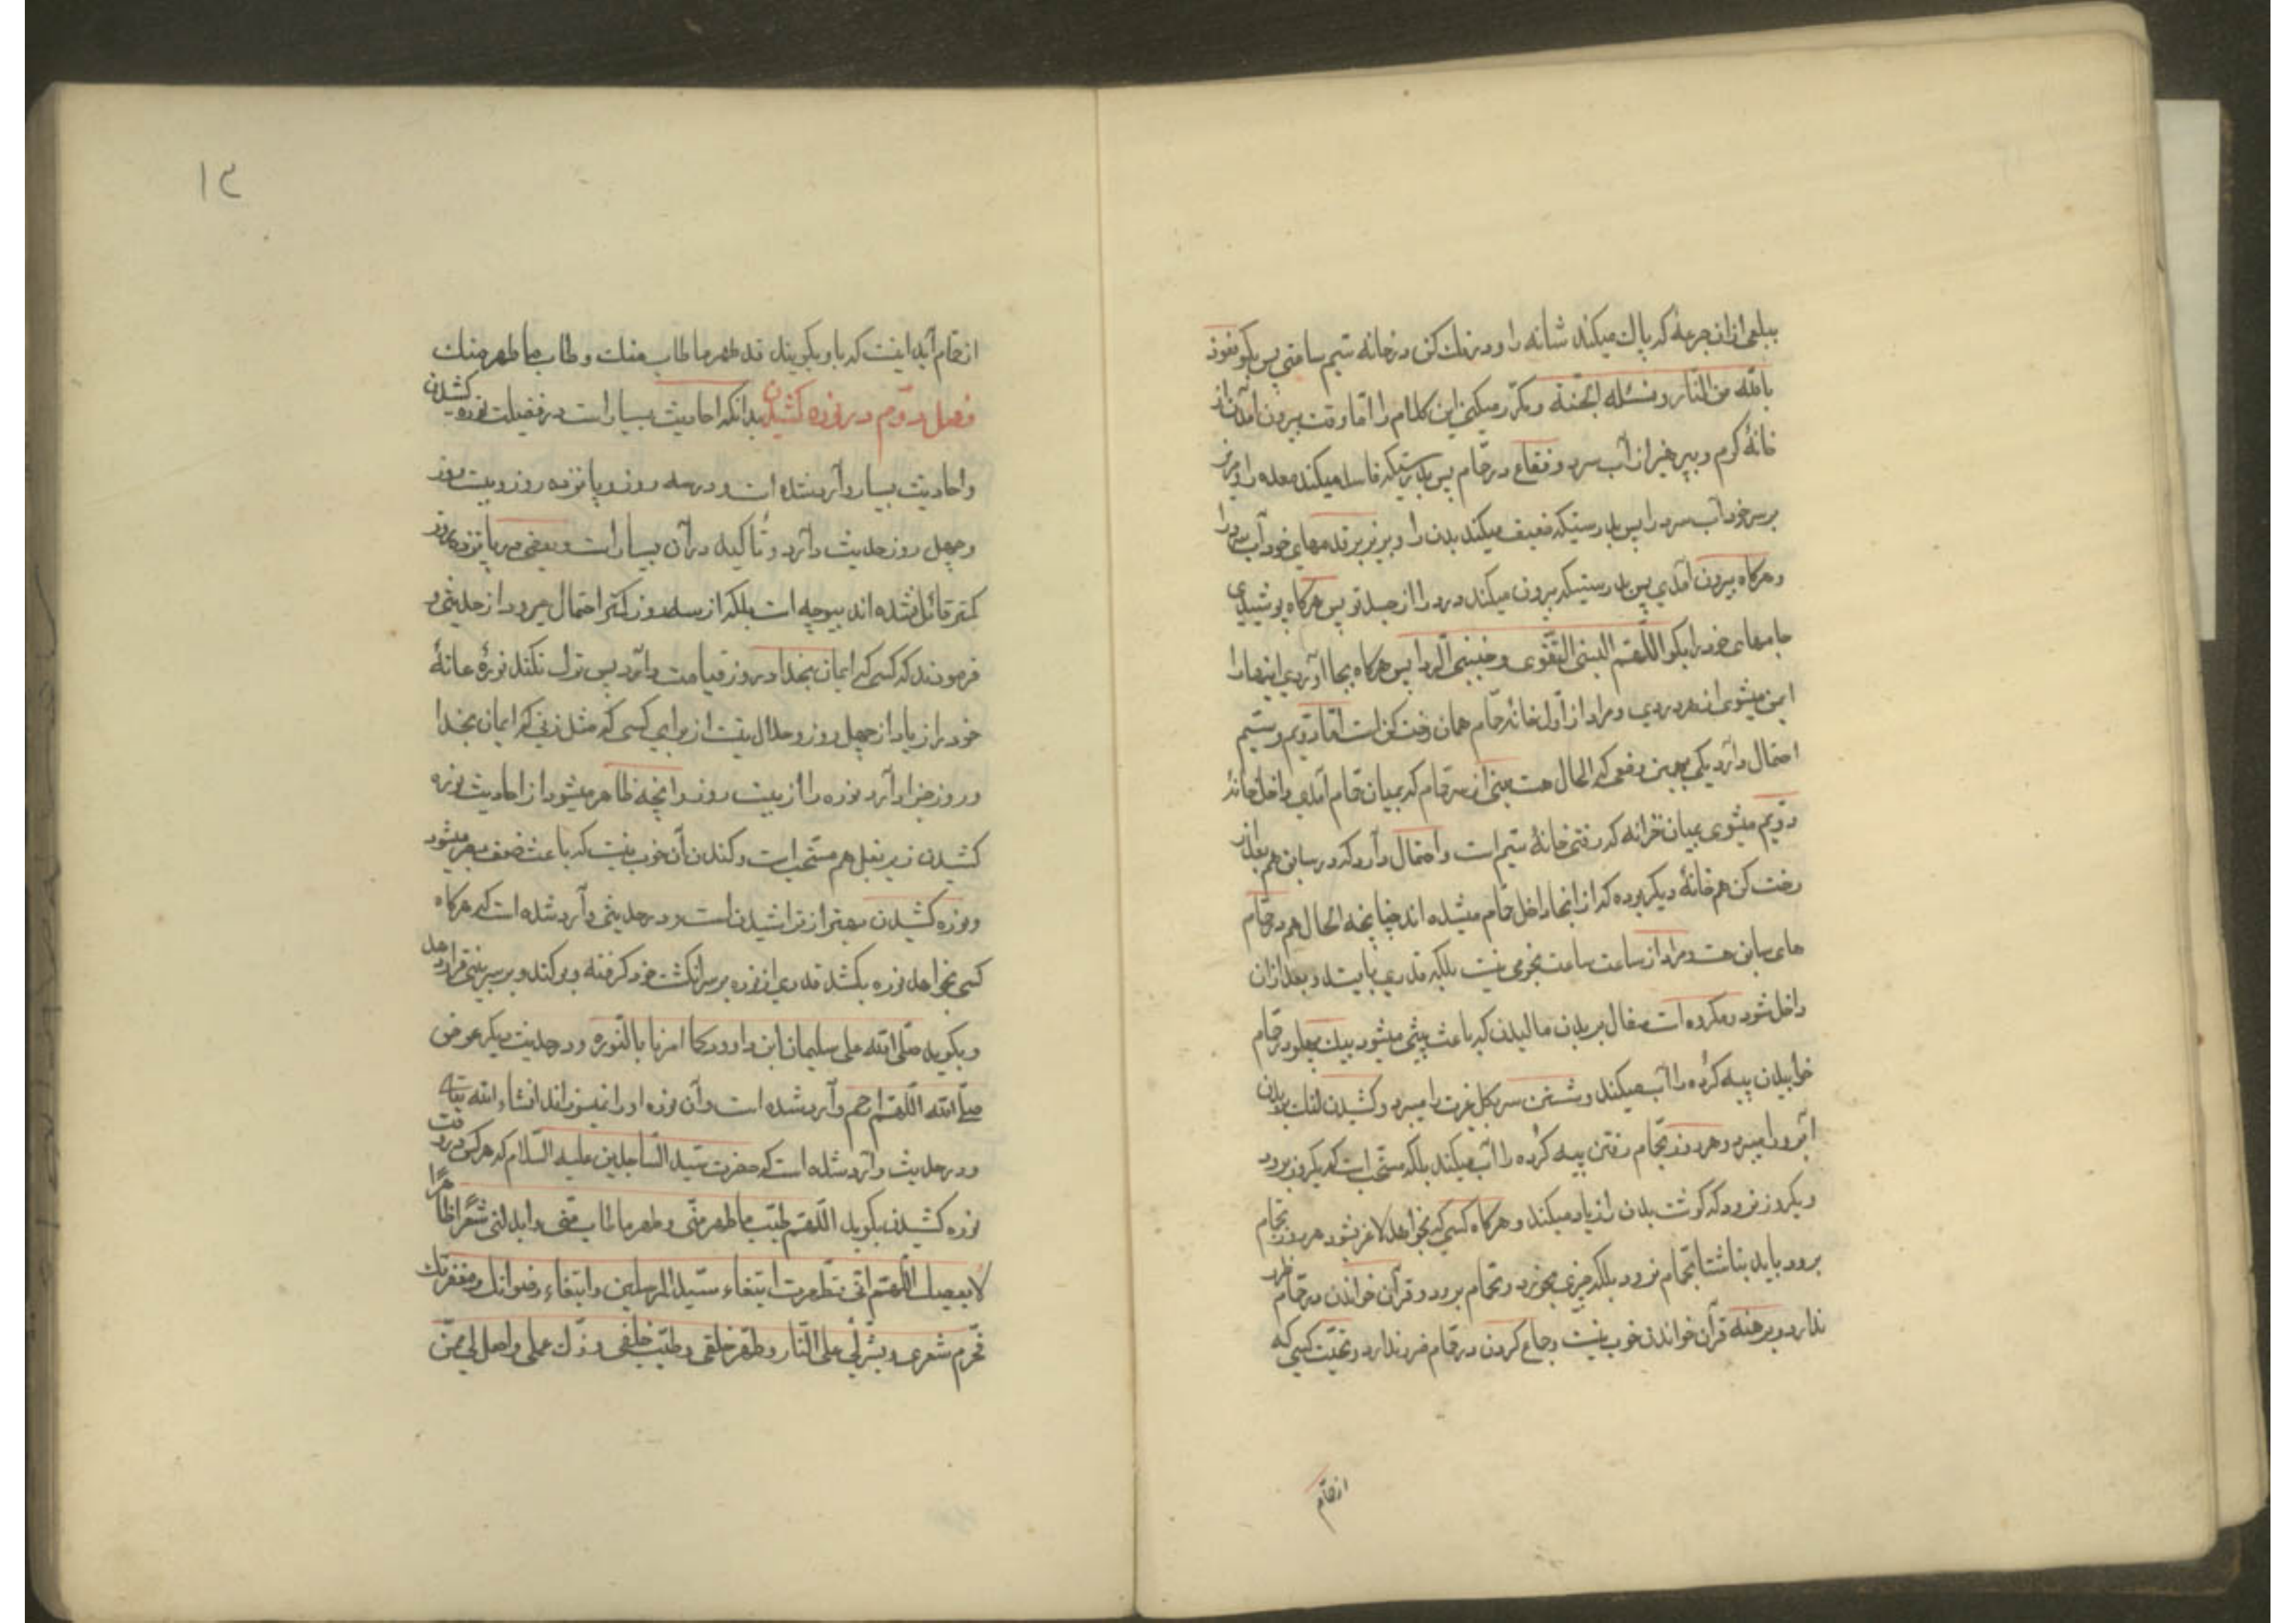 ببلعی از آن جرعهٔ که پاک میکند مثانه را و درنگ کن در خانه سیم ساعتی پس بکو نعوذ
بالله من النّار و نسئله الجنّة و مکرّر میکنی این کلام را تا وقت بیرون آمدن از
خانهٔ کرم و بپرهیز از آب سرد و فقاع در حمّام پس بدرستیکه فاسد میکند معده را و مریز
بر سر خود آب سرد را پس بدرستیکه ضعیف میکند بدن را و بریز بر قدمهای خود آب سرد را
و هرکاه بیرون آمدی پس بدرستیکه بیرون میکند درد را از جسد تو پس هرکاه پوشیدی
جامهای خود را بکو اللّهمّ البسنی التّقوی و جنّبنی الردا پس هرکاه بجا آوردی اینها را
ایمن میشوی از هر دردی و مراد از اول خانه حمّام همان رخت کن است امّا دویم و سیم
احتمال دارد یکی بهمین وضعی که الحال هست یعنی از سر حمام که بمیان حمام آمدی داخل خانهٔ
دویم میشوی بمیان خزانه که رفتی خانهٔ سیم است و احتمال دارد که در سابق هم بعد از
رخت کن هم خانهٔ دیکر بوده که از انجا داخل حمام میشده اند چنانچه الحال هم در حمّام
های سابق هست و مراد از ساعت ساعت نجومی نیست بلکه قدری بایستد و بعد از آن
داخل شود و مکروه است سفال بر بدن مالیدن که باعث پیسی میشود بیک پهلو در حمّام
خوابیدن پیه کرده را آب میکند و شستن سر بکل غیرت را میبرد و کشیدن لنک بر بدن
آبرو را میبرد و هر روز بحمّام رفتن پیه کرده را آب میکند بلکه مستحب است که یکروز برود
و یکروز نرود که کوشت بدن را زیاد میکند و هرکاه کسی که بخواهد لاغر شود هر روز بحمّام
برود باید بناشتا بحمام نرود بلکه چیزی بخورد و بحمام برود و قرآن خواندن در حمّام ضرر
ندارد و برهنه قرآن خواندن خوب نیست و جماع کردن در حمّام ضرر ندارد و تحیّت کسی که
از حمّام
۱۳
از حمّام آید اینست که باو بکویند قد طهر ما طاب منك و طاب ما طهر منك
فصل دوّم در نوره کشیدن بدانکه احادیث بسیار است در فضیلت نوره کشیدن
و احادیث بسیار وارد شده است و در سه روز و پانزده روز و بیست روز
و چهل روز حدیث وارد و تأکید در آن بسیار است و بعضی در پانزده روز
کمتر قائل نشده اند بیوجه است بلکه از سه روز کمتر احتمال میرود از حدیثی و
فرمودند که کسی که ایمان بخدا و روز قیامت دارد پس ترک نکند نورهٔ عانهٔ
خود را زیاد از چهل روز و حلال نیست از برای کسی که مثل زنی که ایمان بخدا
و روز جزا دارد نوره را از بیست روز و آنچه ظاهر میشود از احادیث نوره
کشیدن زیر بغل هم مستحب است و کندن آن خوب نیست که باعث ضعف بصر میشود
و نوره کشیدن بهتر از تراشیدن است و در حدیثی وارد شده است که هرکاه
کسی بخواهد نوره بکشد قدری از نوره بر سر انکشت خود کرفته و بو کند و بر سر بینی قرار دهد
و بکوید صلّی الله علی سلیمان ابن داوود کما امرنا بالنّوره و در حدیث دیکر عوض
صلّی الله اللّهمّ ارحم وارد شده است و آن نوره او را نمیسوزاند انشاء الله تعالی
و در حدیث وارد شده است که حضرت سیّد السّاجدین علیه السّلام که هرکس در وقت
نوره کشیدن بکوید اللّهمّ طیّب ما طهر منّی و طهر ما طاب منّی و ابدلنی شعرا طاهرًا
لا یعصیك اللّهمّ انّی تطهرت ابتغاء سنّة المرسلین و ابتغاء رضوانك و مغفرتك
فحرّم شعری و بشرلی علی النّار و طهّر خلقی و طیّب خلقی و زكّ عملی و اجعلنی ممّن